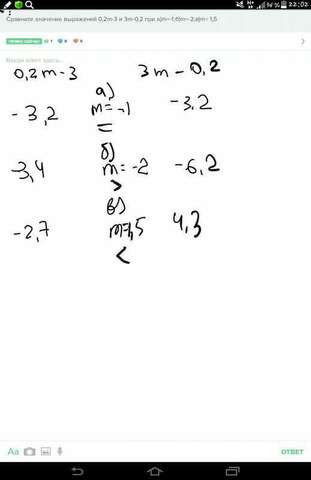 22:02
Сравните значение выражений 0,2m-3 и 3m-0,2 при а)m=-1;б)m=-2;в)m=1,5
0,2m-3 3m-0,2
а)
-3,2 m=-1 -3,2
=
б)
-3,4 m=-2 -6,2
>
в)
-2,7 m=1,5 4,3
<
Aa ОТВЕТ